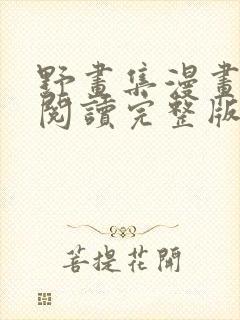 野畫集漫畫
閱讀完整版
菩提花開